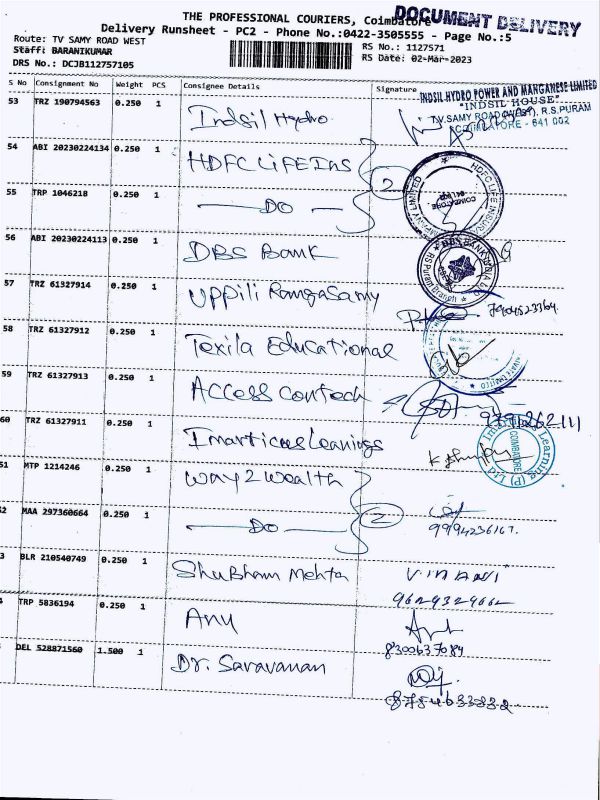 THE PROFESSIONAL COURIERS, Coimbatore
DOCUMENT DELIVERY
Delivery Runsheet - PC2 - Phone No.:0422-3505555 - Page No.:5
Route: TV SAMY ROAD WEST
RS No.: 1127571
Staff: BARANIKUMAR
RS Date: 02-Mar-2023
DRS No.: DCJB112757105
S No Consignment No Weight PCS Consignee Details Signature
INDSIL HYDRO POWER AND MANGANESE LIMITED
"INDSIL HOUSE"
T.V.SAMY ROAD (WEST), R.S.PURAM
COIMBATORE - 641 002
53 TRZ 190794563 0.250 1 Indsil Hydro
54 ABI 20230224134 0.250 1 HDFC LIFE Ins
2
HDFC LIFE INSURANCE COMPANY LIMITED
COIMBATORE
55 TRP 1046218 0.250 1 DO
56 ABI 20230224113 0.250 1 DBS Bank
DBS BANK INDIA
RS Puram Branch
57 TRZ 61327914 0.250 1 Uppili Rangasamy
7904523364
58 TRZ 61327912 0.250 1 Texila Educational
59 TRZ 61327913 0.250 1 Access contech
60 TRZ 61327911 0.250 1 Imarticus Leanings
Learning (P) Ltd
COIMBATORE
51 MTP 1214246 0.250 1 Way 2 Wealth
2
52 MAA 297360664 0.250 1 DO
9994236167
3 BLR 210540749 0.250 1 Shubham Mehta
9629329662
TRP 5836194 0.250 1 Anu
8300637089
DEL 528871560 1.500 1 Dr. Saravanan
8754633332